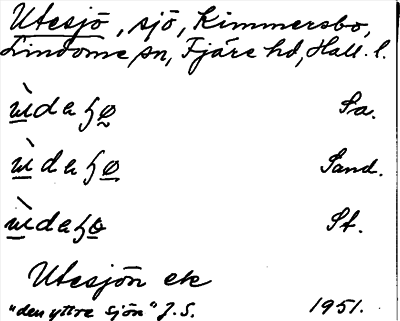 Utesjö, sjö, Kimmersbo,
Lindome sn, Fjäre hd, Hall. l.
Sa.
Sand.
St.
Utesjön ek
"den yttre sjön" J.S. 1951.